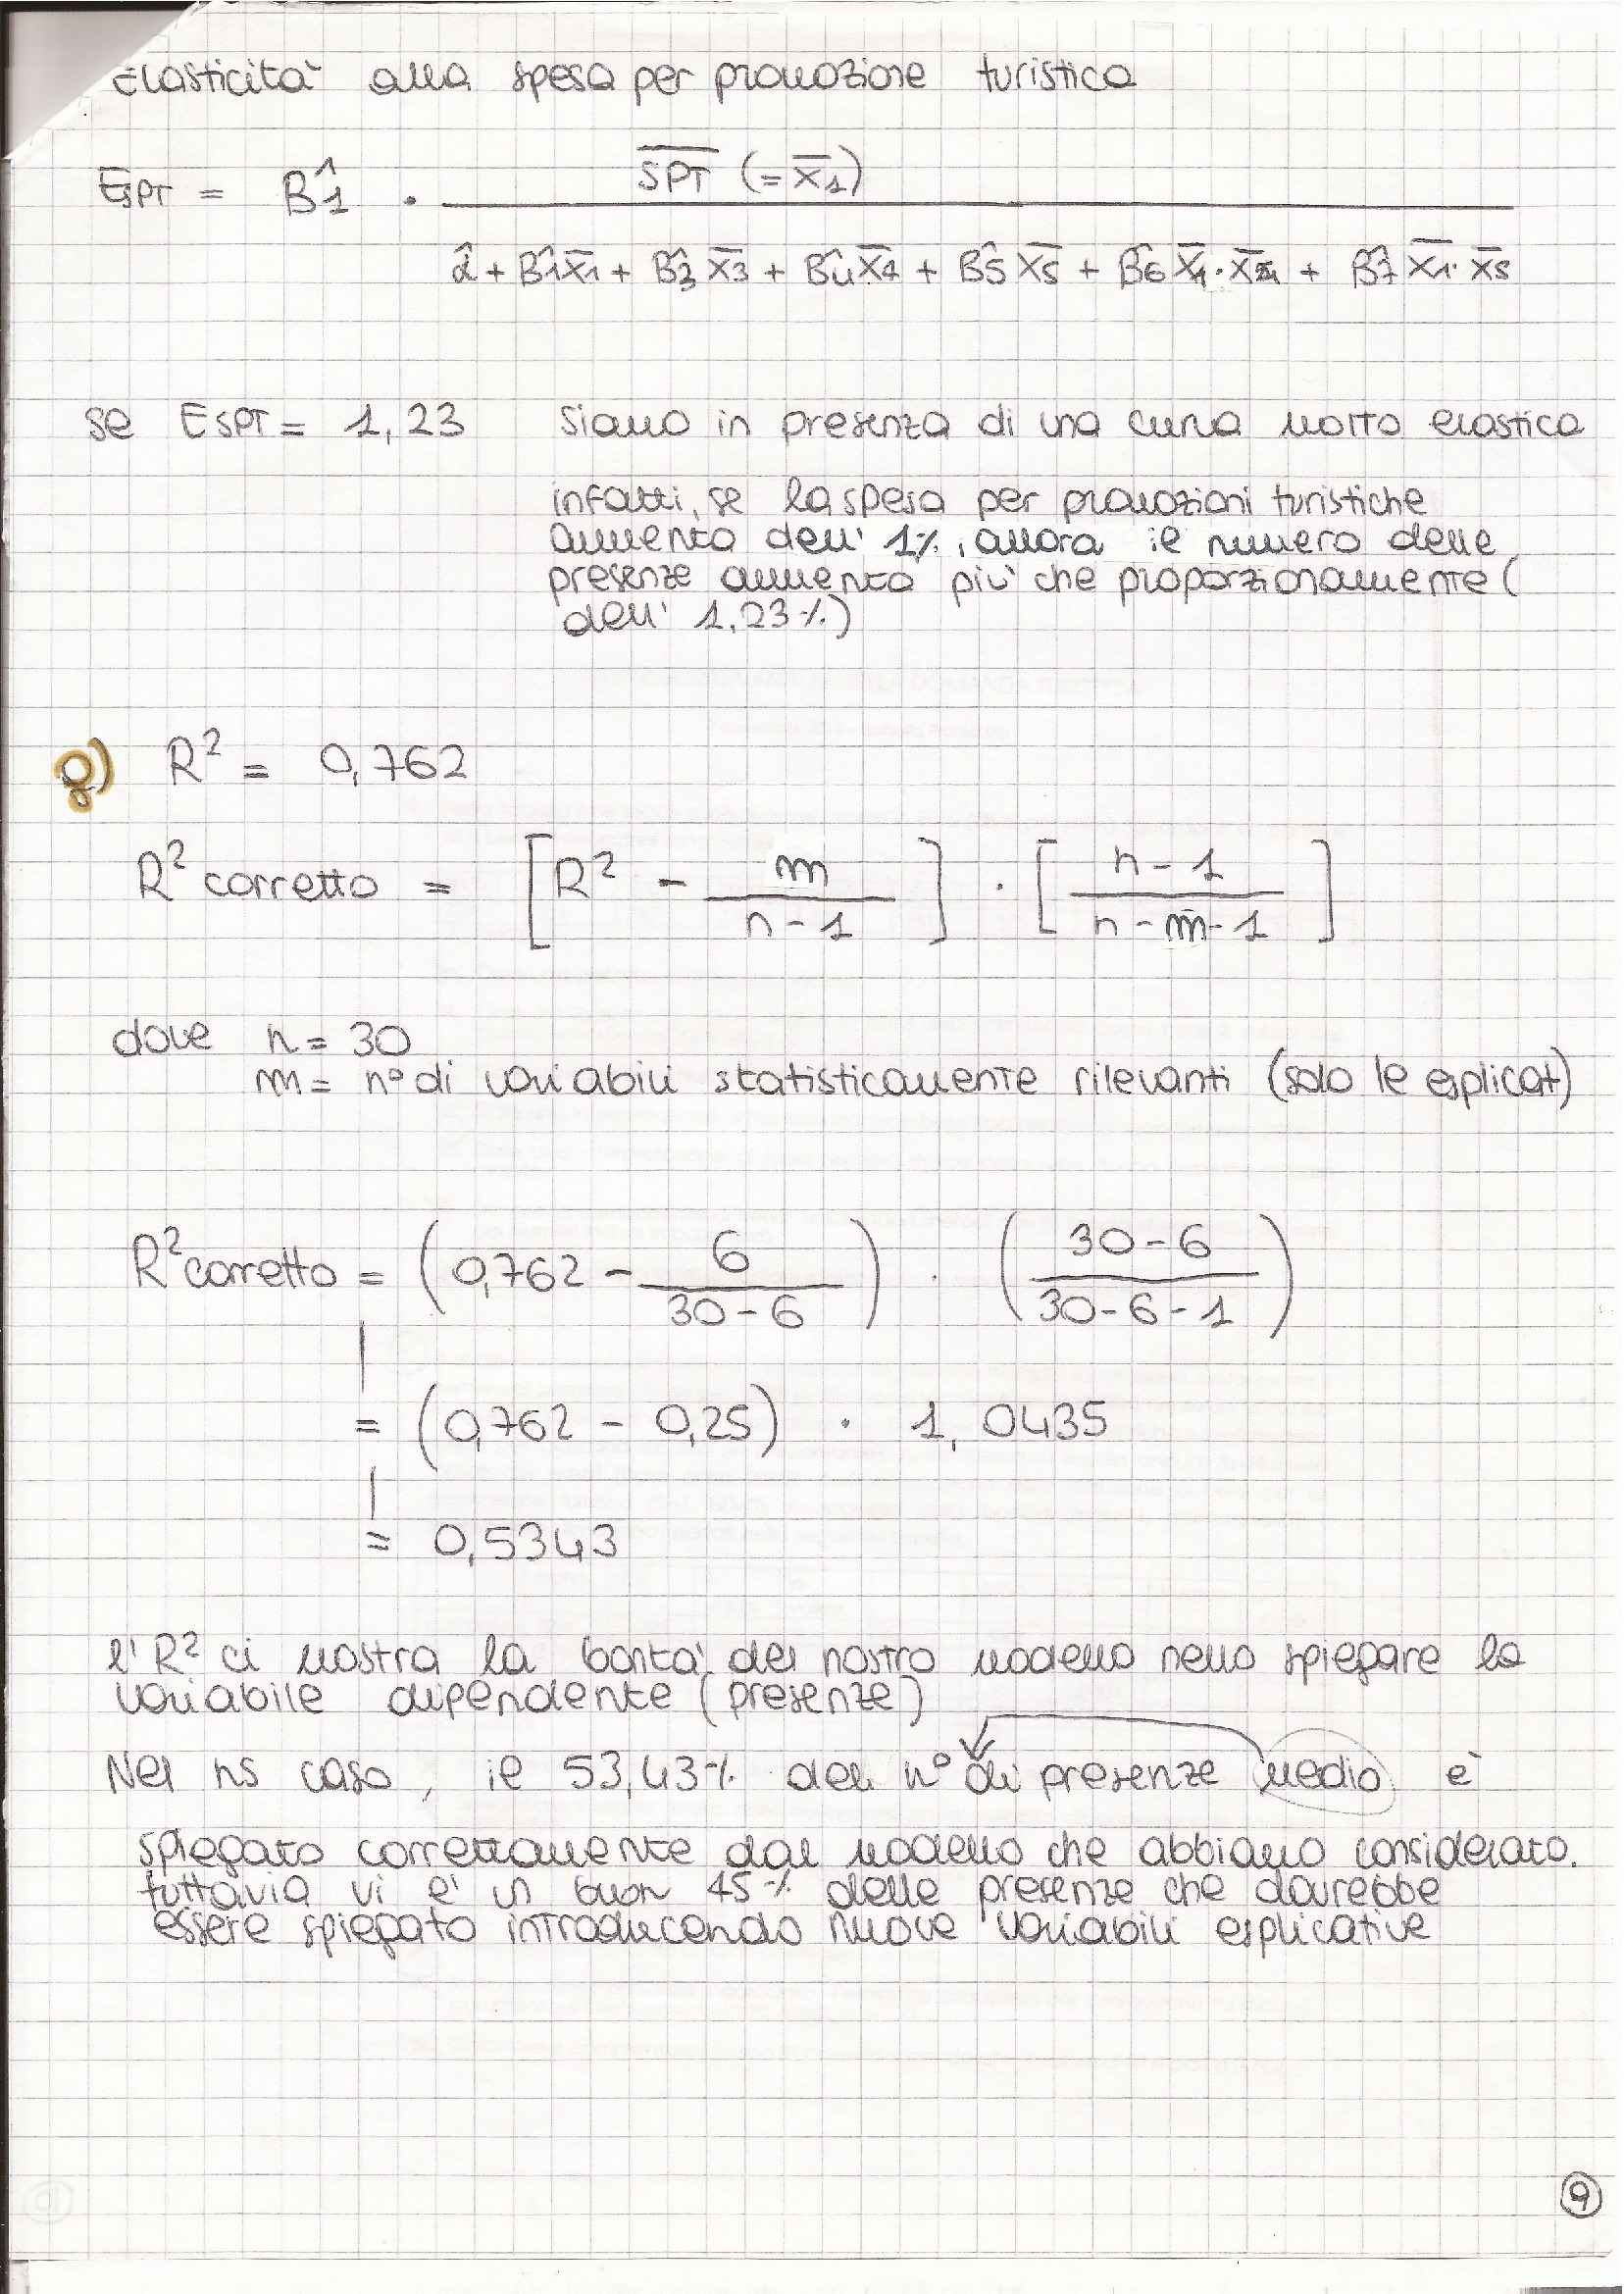 Elasticità alla spesa per promozione turistica
ESPT = B̂1 · S̅P̅T̅ (= x̄1) / α̂ + B̂1 x̄1 + B̂3 x̄3 + B̂4 x̄4 + B̂5 x̄5 + B̂6 x̄1 · x̄4 + B̂7 x̄1 · x̄5
se ESPT = 1,23 siamo in presenza di una curva molto elastica
infatti, se la spesa per promozioni turistiche
aumenta dell' 1%, allora il numero delle
presenze aumenta più che proporzionalmente (
dell' 1,23%)
g) R² = 0,762
R² corretto = [R² - m / n - 1] · [n - 1 / n - m - 1]
dove n = 30
m = n° di variabili statisticamente rilevanti (solo le esplicat)
R² corretto = (0,762 - 6 / 30 - 6) · (30 - 6 / 30 - 6 - 1)
= (0,762 - 0,25) · 1,0435
= 0,5343
l'R² ci mostra la bontà del nostro modello nello spiegare la
variabile dipendente (presenze)
Nel ns caso, il 53,43% del n° di presenze medio è
spiegato correttamente dal modello che abbiamo considerato.
tuttavia vi è un buon 45% delle presenze che dovrebbe
essere spiegato introducendo nuove variabili esplicative
9